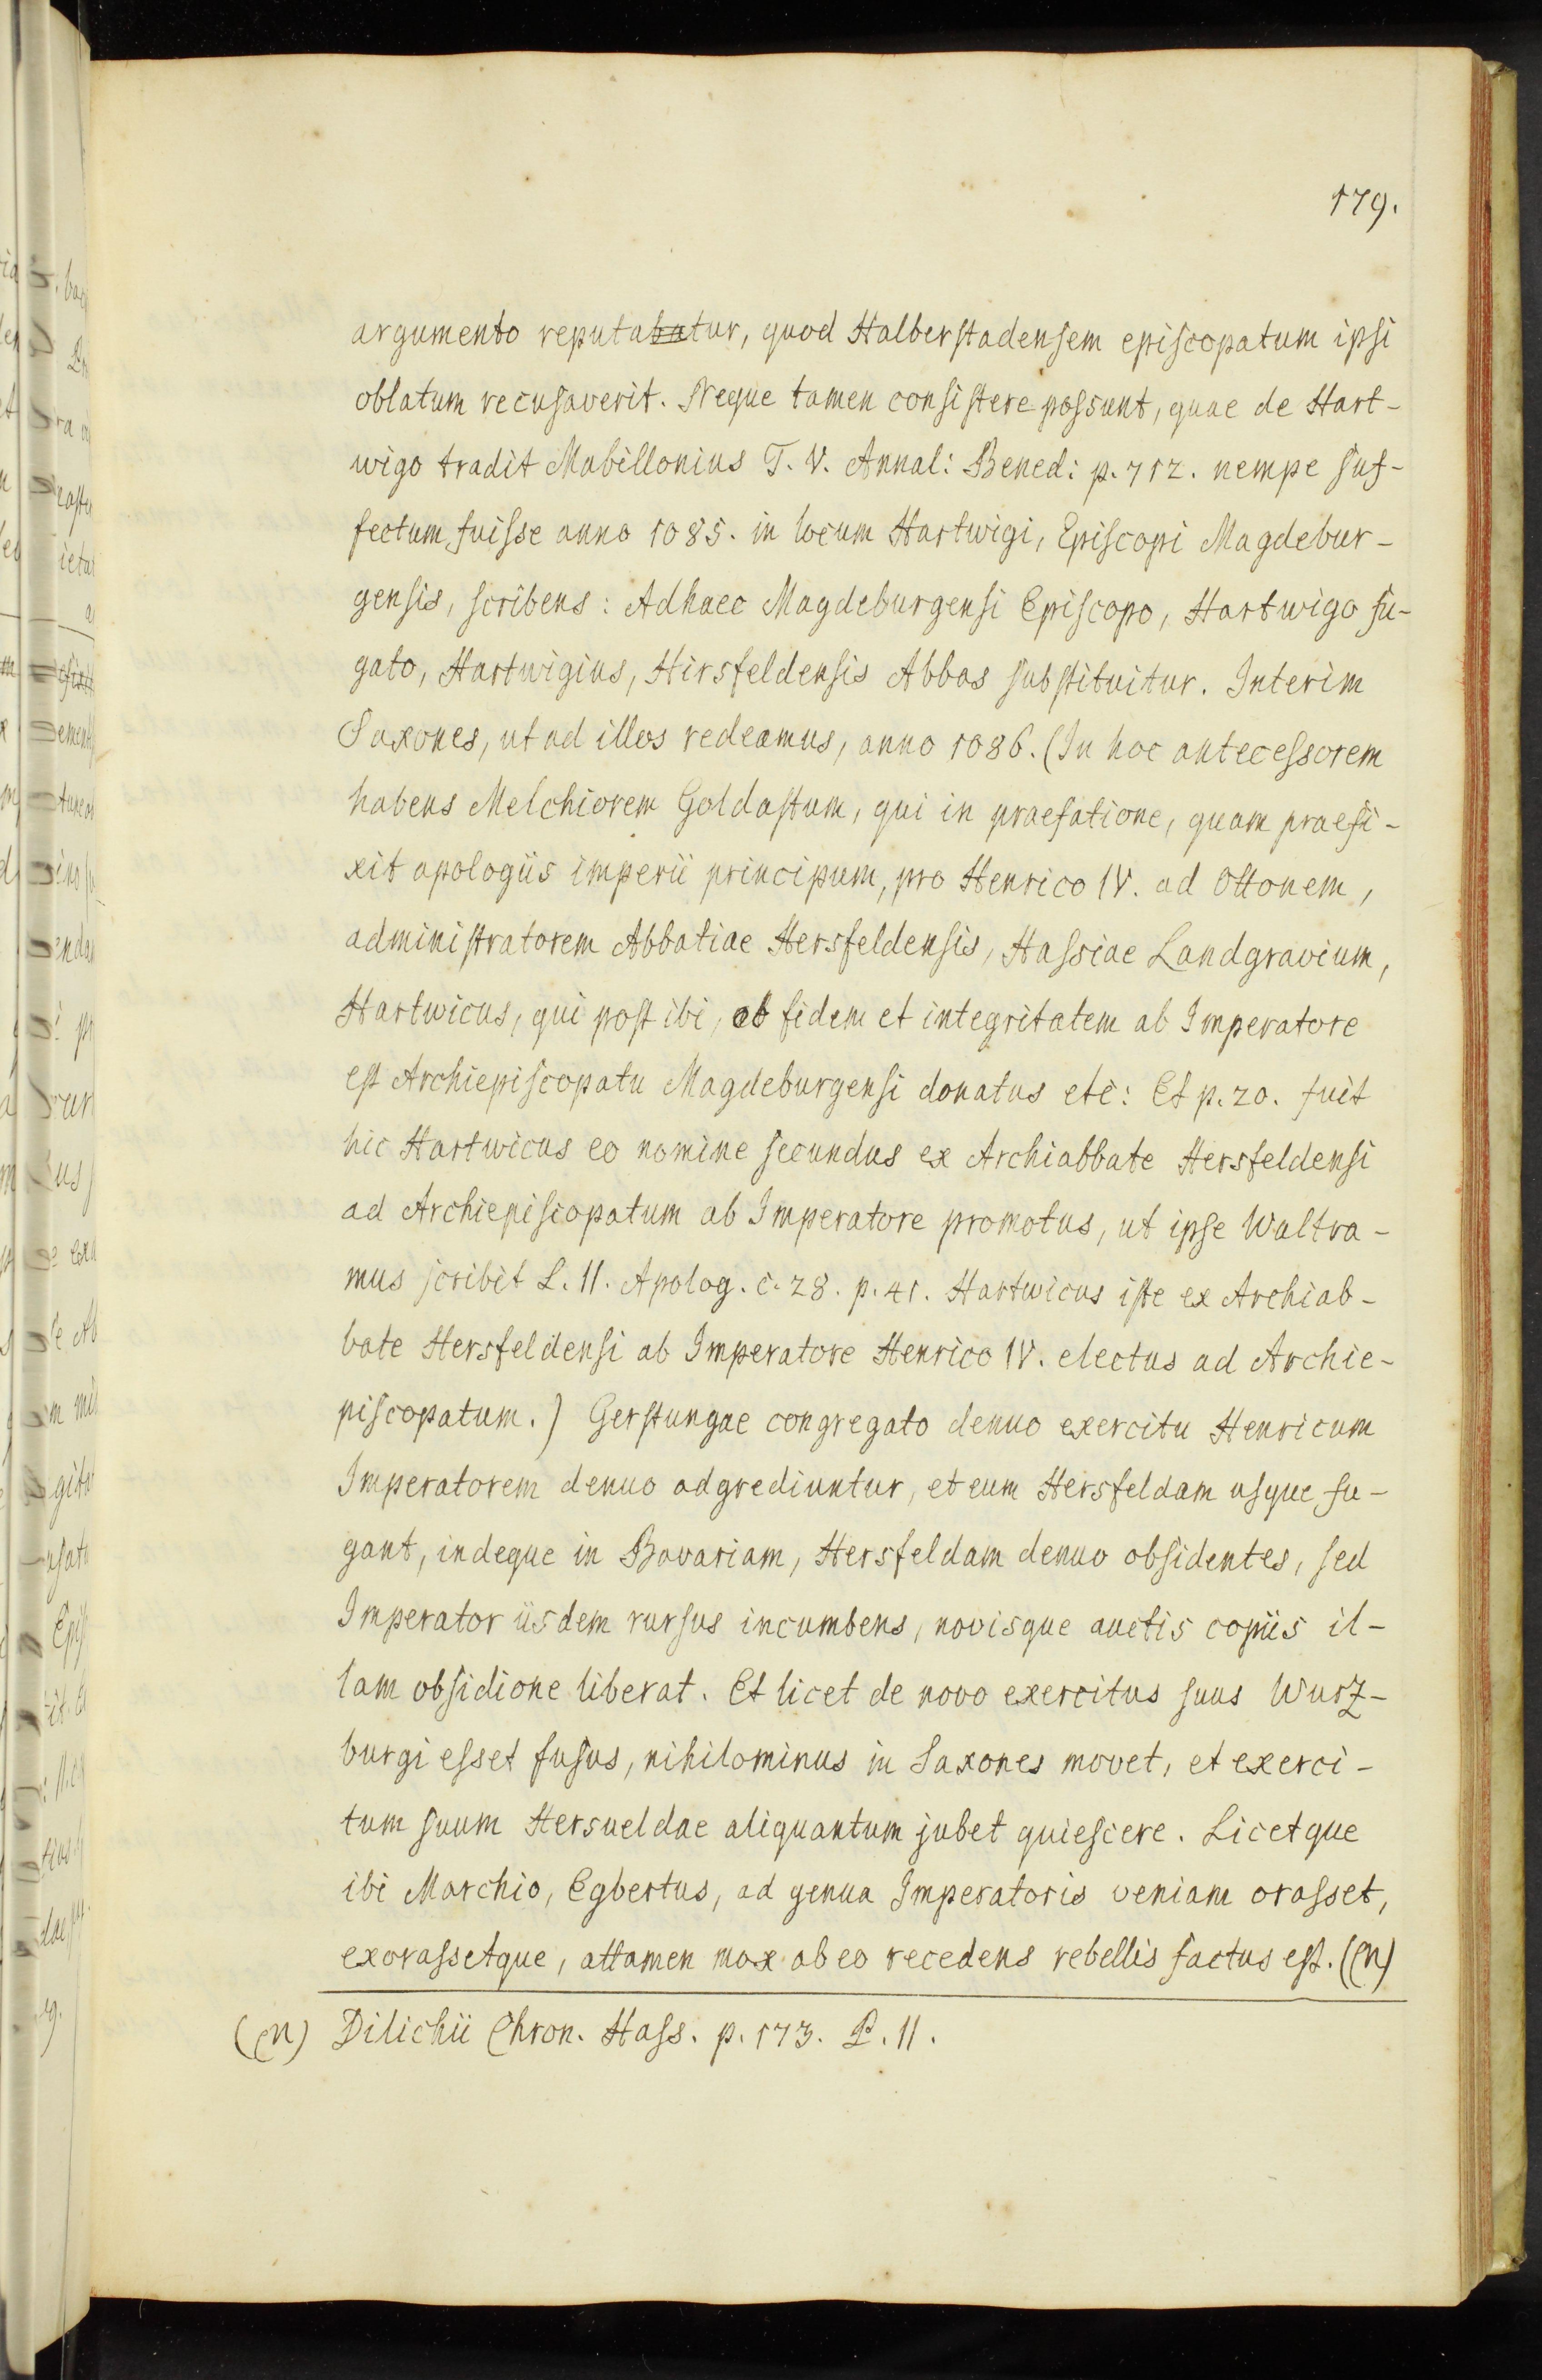 179.
argumento reputabatur, quod Halberstadensem episcopatum ipsi
oblatum recusaverit. Neque tamen consistere possunt, quae de Hart-
wigo tradit Mabillonius T. V. Annal: Bened: p. 712. nempe suf-
fectum fuisse anno 1085. in locum Hartwigi, Episcopi Magdebur-
gensis, scribens: Adhaec Magdeburgensi Episcopo, Hartwigo fu-
gato, Hartwigius, Hirsfeldensis Abbas substituitur. Interim
Saxones, ut ad illos redeamus, anno 1086. (In hoc antecessorem
habens Melchiorem Goldastum, qui in praefatione, quam praefi-
xit apologiis imperii principum, pro Henrico IV. ad Ottonem,
administratorem Abbatiae Hersfeldensis, Hassiae Landgravium,
Hartwicus, qui post ibi, ob fidem et integritatem ab Imperatore
est Archiepiscopatu Magdeburgensi donatus etc: Et p. 20. fuit
hic Hartwicus eo nomine secundus ex Archiabbate Hersfeldensi
ad Archiepiscopatum ab Imperatore promotus, ut ipse Waltra-
mus scribit L. II. Apolog. c. 28. p. 41. Hartwicus iste ex Archiab-
bate Hersfeldensi ab Imperatore Henrico IV. electus ad Archie-
piscopatum.) Gerstungae congregato denuo exercitu Henricum
Imperatorem denuo adgrediuntur, et eum Hersfeldam usque fu-
gant, indeque in Bavariam, Hersfeldam denuo obsidentes, sed
Imperator iisdem rursus incumbens, novisque auctis copiis il-
lam obsidione liberat. Et licet de novo exercitus suus Wurz-
burgi esset fusus, nihilominus in Saxones movet, et exerci-
tum suum Hersueldae aliquantum jubet quiescere. Licetque
ibi Marchio, Egbertus, ad genua Imperatoris veniam orasset,
exorassetque, attamen mox ab eo recedens rebellis factus est. (m)
(m) Dilichii Chron. Hass. p. 173. P. II.